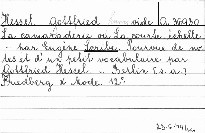 Hessel Gottfried vide A 36930
La camaraderie ou La courte échelle
par Eugène Scribe. Pourvue de no
tes et d'un petit vocabulaire par
Gottfried Hessel. Berlin (s. a.)
Friedberg & Mode. 12°